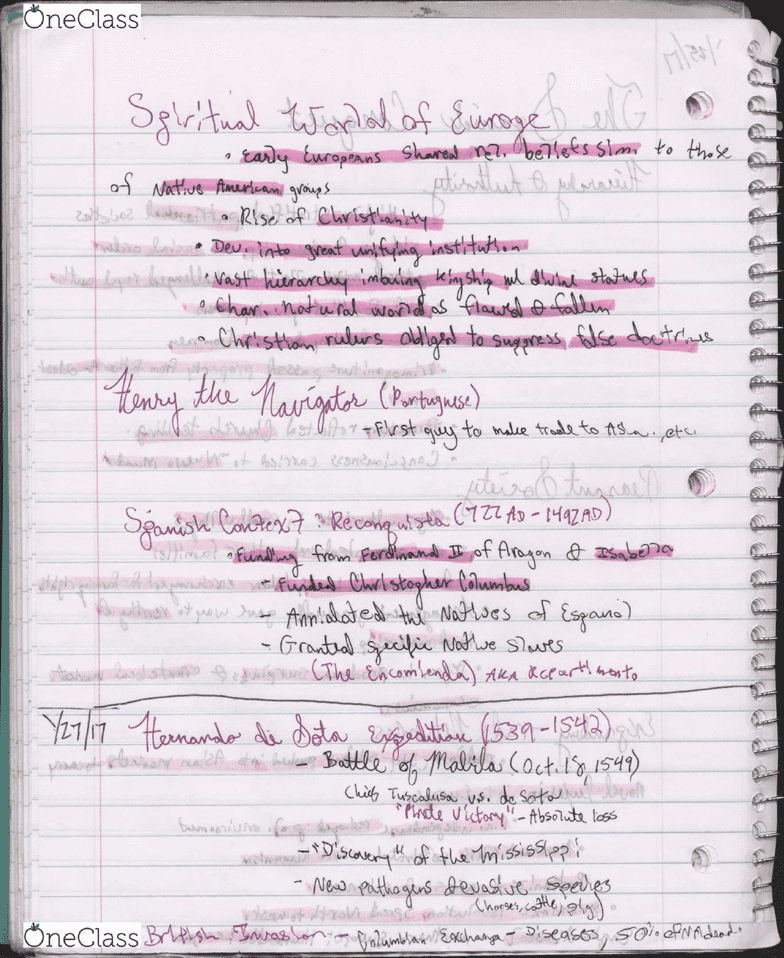 OneClass
Spiritual World of Europe
• Early Europeans shared rel. beliefs sim. to those
of Native American groups
• Rise of Christianity
• Dev. into great unifying institution
• Vast hierarchy imbuing kingship w/ divine statues
• Char. natural world as flawed & fallen
• Christian rulers obliged to suppress false doctrines
Henry the Navigator (Portuguese)
- First guy to make trade to Asia., etc.
Spanish Context: Reconquista (722AD-1492AD)
• Funding from Ferdinand II of Aragon & Isabella
- Funded Christopher Columbus
- Annialated the Natives of Espano)
- Granted specific Native slaves
(The Encomienda) AKA Repartimento
1/27/17
Hernando de Soto Expedition (1539-1542)
- Battle of Mabila (Oct. 18, 1549)
Chief Tuscalusa v.s. de Soto
Victory" - Absolute loss
- "Discovery" of the Mississippi
- New pathogens & evasive species
(horses, cattle, pig)
OneClass
British Invasion - Columbian Exchange - Diseases, 50% of NA dead.